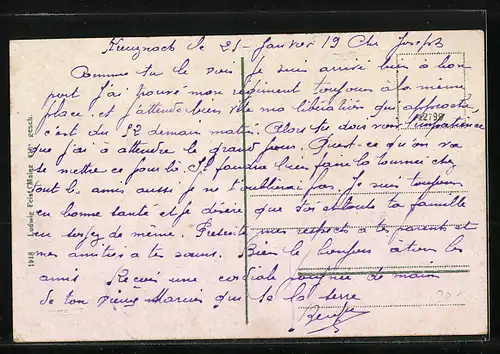 Kreuznach le 21 Janvier 19 Cher Joseph
Comme tu le vois je suis arrivé bien à bon
port j'ai trouvé mon régiment toujours à la même
place et j'attends bien vite ma libération qui approche
c'est du 52 demain matin. Alors tu dois voir l'impatience
que j'ai à attendre le grand jour. Qu'est-ce qu'on va
de mettre ce jour là. Il faudra bien faire la tournée chez
tout les amis aussi je ne t'oublierai pas. Je suis toujours
en bonne santé et je désire que toi et toute ta famille
en soyez de même. Présente mes respects à tes parents et
mes amitiés à tes sœurs. Bien le bonjour à tous les
amis Reçois une cordiale poignée de main
de ton vieux qui se la serre
22799
1918 Ludwig Feist, Mainz ges. gesch.